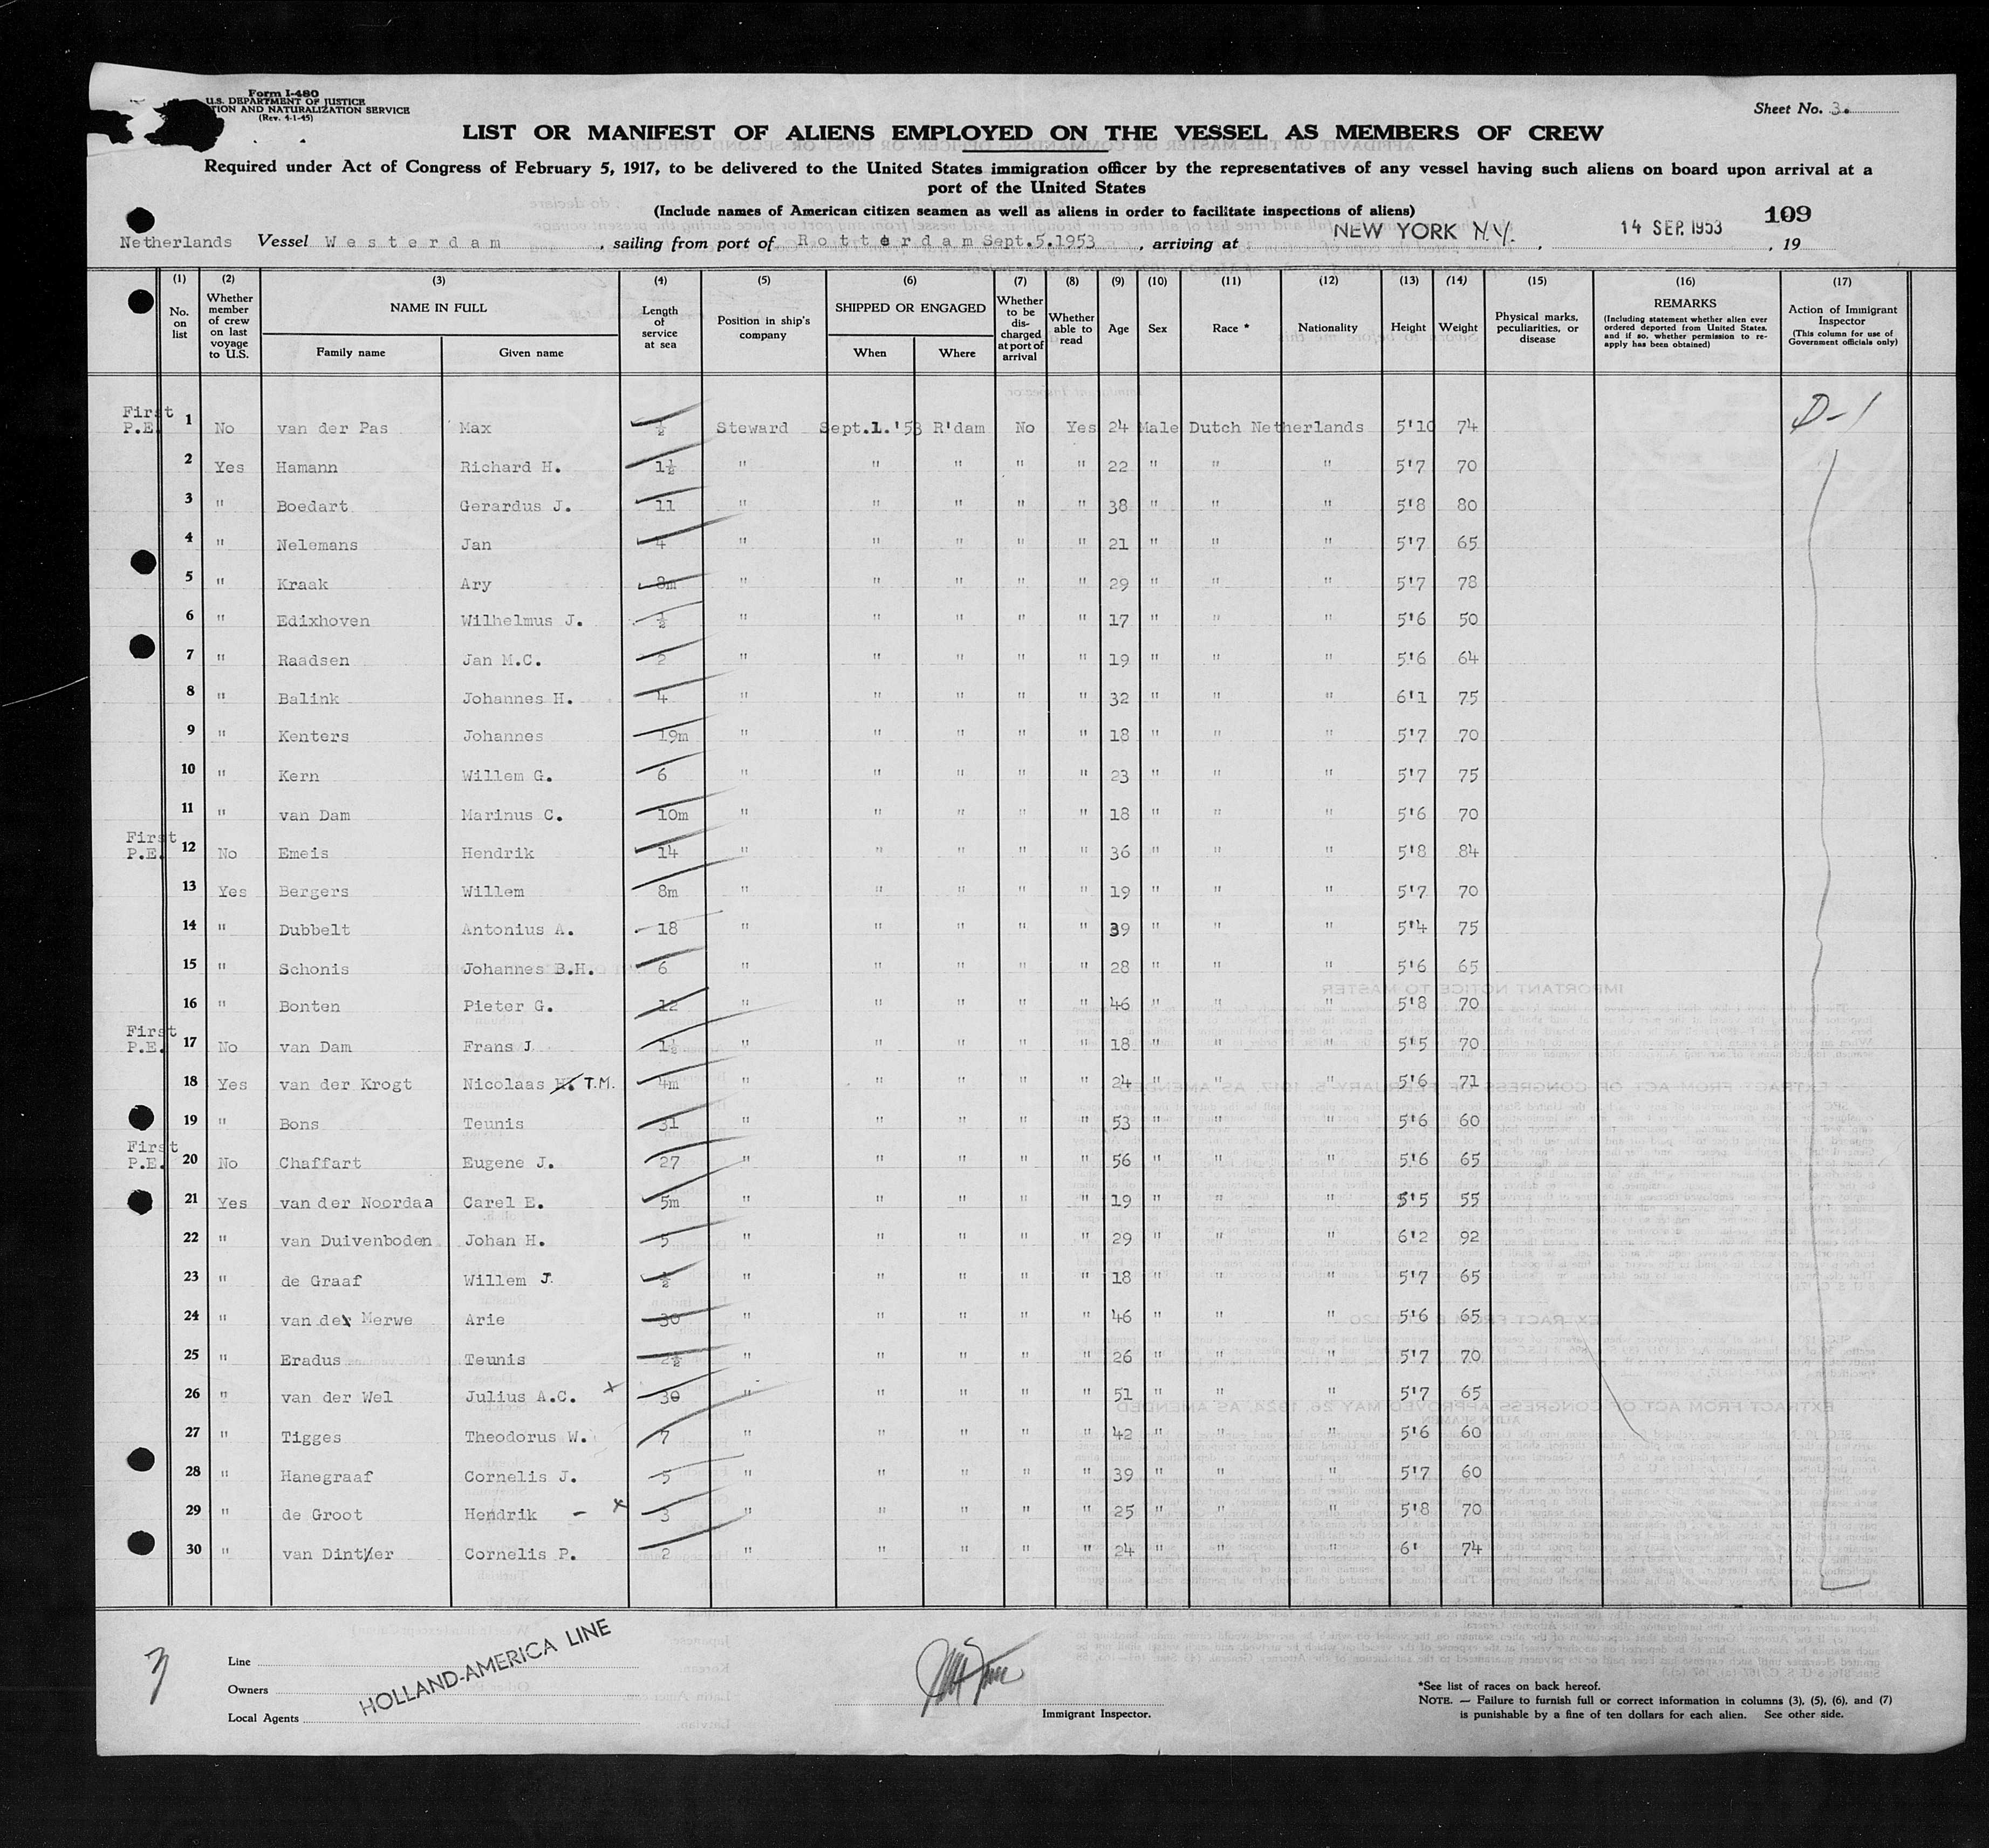 Form I-480
U.S. DEPARTMENT OF JUSTICE
TION AND NATURALIZATION SERVICE
(Rev. 4-1-45)
Sheet No. 3.
LIST OR MANIFEST OF ALIENS EMPLOYED ON THE VESSEL AS MEMBERS OF CREW
Required under Act of Congress of February 5, 1917, to be delivered to the United States immigration officer by the representatives of any vessel having such aliens on board upon arrival at a
port of the United States
(Include names of American citizen seamen as well as aliens in order to facilitate inspections of aliens)
109
Netherlands Vessel Westerdam, sailing from port of Rotterdam Sept.5.1953, arriving at NEW YORK N.Y., 14 SEP. 1953, 19
(1) (2) (3) (4) (5) (6) (7) (8) (9) (10) (11) (12) (13) (14) (15) (16) (17)
No. on list
Whether member of crew on last voyage to U.S.
NAME IN FULL
Family name Given name
Length of service at sea
Position in ship's company
SHIPPED OR ENGAGED
When Where
Whether to be discharged at port of arrival
Whether able to read
Age
Sex
Race *
Nationality
Height
Weight
Physical marks, peculiarities, or disease
REMARKS
(Including statement whether alien ever ordered deported from United States, and if so, whether permission to reapply has been obtained)
Action of Immigrant Inspector
(This column for use of Government officials only)
First P.E. 1 No van der Pas Max ½ Steward Sept.1.'53 R'dam No Yes 24 Male Dutch Netherlands 5'10 74 D-1
2 Yes Hamann Richard H. 1½ " " " " " 22 " " " 5'7 70
3 " Boedart Gerardus J. 11 " " " " " 38 " " " 5'8 80
4 " Nelemans Jan 4 " " " " " 21 " " " 5'7 65
5 " Kraak Ary 8m " " " " " 29 " " " 5'7 78
6 " Edixhoven Wilhelmus J. ½ " " " " " 17 " " " 5'6 50
7 " Raadsen Jan M.C. 2 " " " " " 19 " " " 5'6 64
8 " Balink Johannes H. 4 " " " " " 32 " " " 6'1 75
9 " Kenters Johannes 19m " " " " " 18 " " " 5'7 70
10 " Kern Willem G. 6 " " " " " 23 " " " 5'7 75
11 " van Dam Marinus C. 10m " " " " " 18 " " " 5'6 70
First P.E. 12 No Emeis Hendrik 14 " " " " " 36 " " " 5'8 84
13 Yes Bergers Willem 8m " " " " " 19 " " " 5'7 70
14 " Dubbelt Antonius A. 18 " " " " " 39 " " " 5'4 75
15 " Schonis Johannes B.H. 6 " " " " " 28 " " " 5'6 65
16 " Bonten Pieter G. 12 " " " " " 46 " " " 5'8 70
First P.E. 17 No van Dam Frans J 1½ " " " " " 18 " " " 5'5 70
18 Yes van der Krogt Nicolaas H. T.M. 4m " " " " " 24 " " " 5'6 71
19 " Bons Teunis 31 " " " " " 53 " " " 5'6 60
First P.E. 20 No Chaffart Eugene J. 27 " " " " " 56 " " " 5'6 65
21 Yes van der Noordaa Carel E. 5m " " " " " 19 " " " 5'5 55
22 " van Duivenboden Johan H. 5 " " " " " 29 " " " 6'2 92
23 " de Graaf Willem J. ½ " " " " " 18 " " " 5'7 65
24 " van der Merwe Arie 30 " " " " " 46 " " " 5'6 65
25 " Eradus Teunis 2½ " " " " " 26 " " " 5'7 70
26 " van der Wel Julius A.C. x 30 " " " " " 51 " " " 5'7 65
27 " Tigges Theodorus W. 7 " " " " " 42 " " " 5'6 60
28 " Hanegraaf Cornelis J. 5 " " " " " 39 " " " 5'7 60
29 " de Groot Hendrik - x 3 " " " " " 25 " " " 5'8 70
30 " van Dinther Cornelis P. 2 " " " " " 24 " " " 6' 74
3
Line
Owners
Local Agents
HOLLAND-AMERICA LINE
Immigrant Inspector.
*See list of races on back hereof.
NOTE. — Failure to furnish full or correct information in columns (3), (5), (6), and (7)
is punishable by a fine of ten dollars for each alien. See other side.